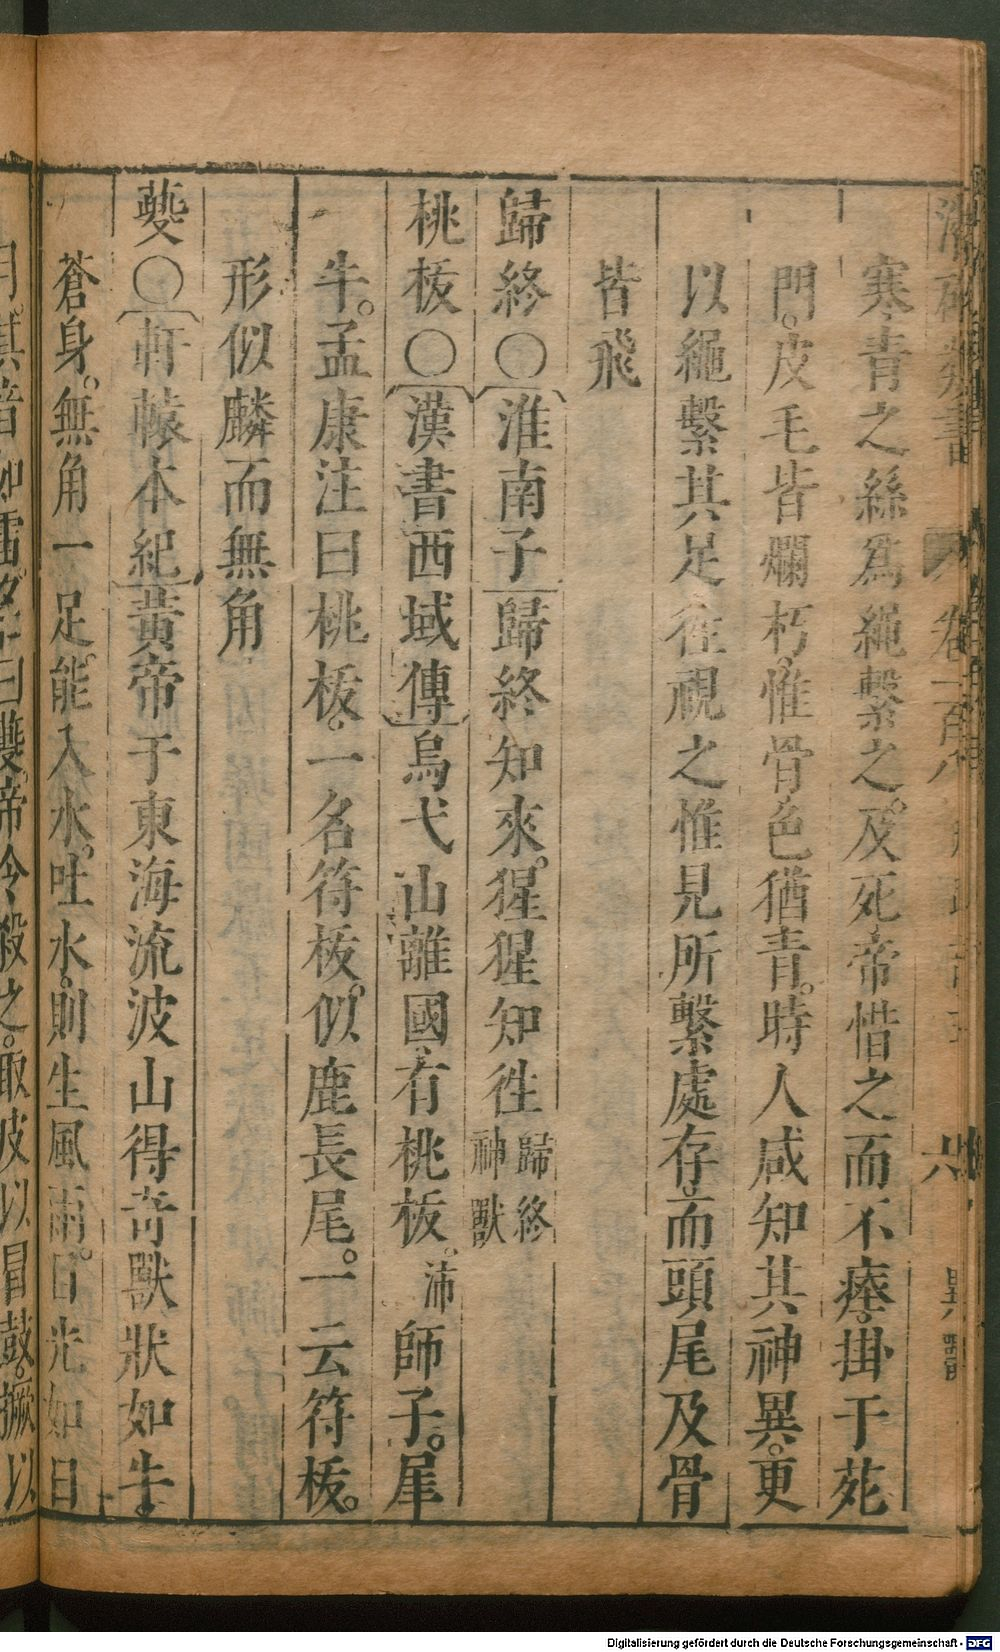 寒青之絲爲繩繫之。及死。帝惜之而不瘗。掛于苑
門。皮毛皆爛朽。惟骨色猶青。時人咸知其神異。更
以繩繫其足。徃視之惟見所繫處存。而頭尾及骨
皆飛
歸終〇淮南子歸終知來。猩猩知徃歸終神獸
桃柭〇漢書西域傳烏弋山離國有桃柭。沛師子。犀
牛。孟康注曰桃柭。一名符柭。似鹿長尾。一云符柭。
形似麟而無角
夔〇軒轅本紀黃帝于東海流波山得奇獸狀如牛。
蒼身。無角一足。能入水。吐水。則生風雨。目光如日
月。其音如雷名曰夔。帝令殺之。取皮以冒鼓。撅以
卷一百八
異獸
Digitalisierung gefördert durch die Deutsche Forschungsgemeinschaft - DFG